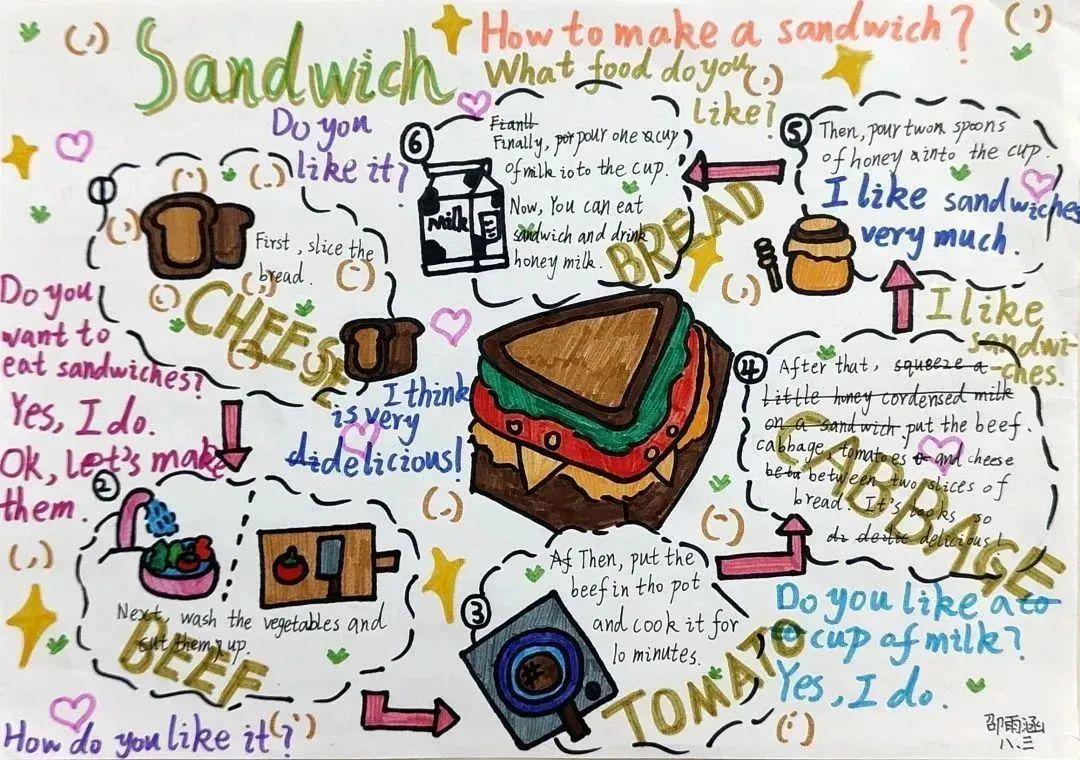 Sandwich
How to make a sandwich?
What food do you
like?
Do you
like it?
①
First, slice the
bread.
CHEESE
Do you
want to
eat sandwiches?
Yes, I do.
Ok, Let's make
them.
②
Next, wash the vegetables and
cut them up.
BEEF
How do you like it?
③
Af Then, put the
beef in tho pot
and cook it for
10 minutes.
TOMATO
④
After that, squeeze a
little honey cordensed milk
on a sandwich put the beef.
cabbage, tomatoes and cheese
beta between two slices of
bread. It's looks so
di delic delicious!
CABBAGE
⑤
Then, pour twon spoons
of honey ainto the cup.
I like sandwiches
very much.
I like
sandwi-
ches.
⑥
Fianll
Finally, por pour one a cup
of milk ioto the cup.
Now, You can eat
sandwich and drink
honey milk.
Milk
BREAD
I think
is very
di delicious!
Do you like a to
to cup of milk?
Yes, I do.
邵雨涵
八.三